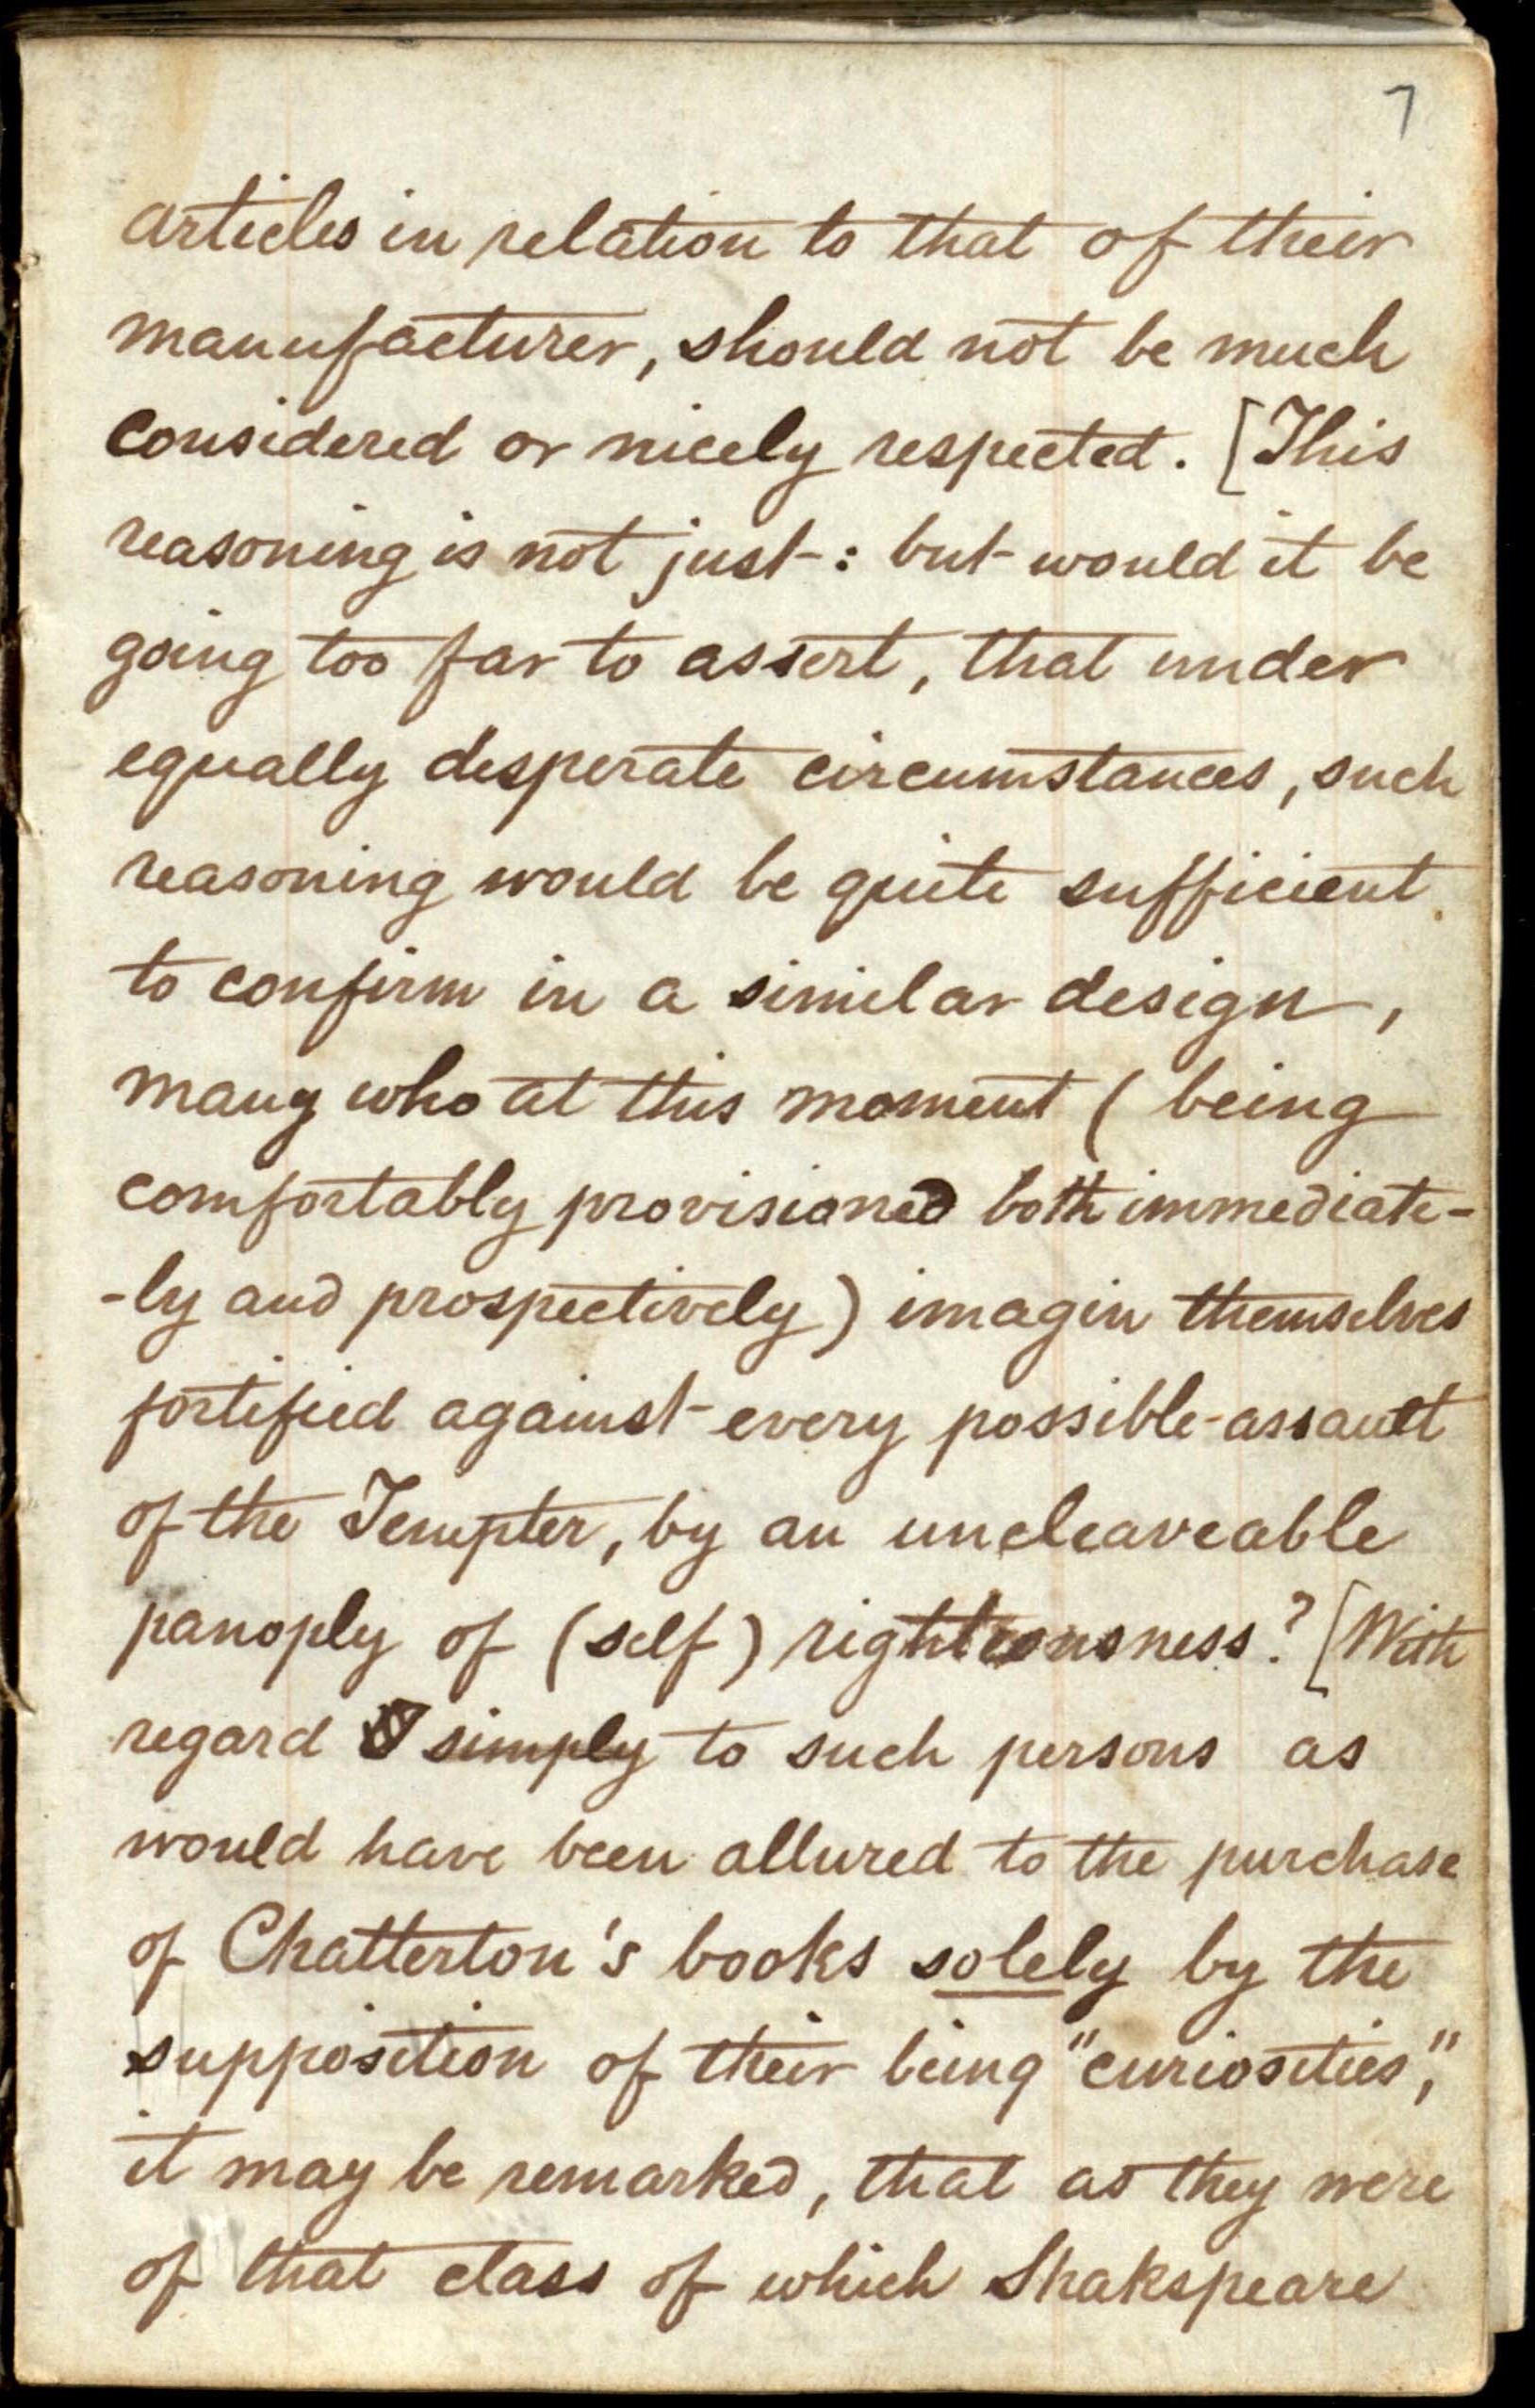 7
articles in relation to that of their
manufacturer, should not be much
considered or nicely respected. [This
reasoning is not just: but would it be
going too far to assert, that under
equally desperate circumstances, such
reasoning would be quite sufficient
to confirm in a similar design,
many who at this moment (being
comfortably provisioned both immediate-
-ly and prospectively) imagin themselves
fortified against every possible assault
of the Tempter, by an uncleaveable
panoply of (self) righteousness? [With
regard simply to such persons as
would have been allured to the purchase
of Chatterton's books solely by the
supposition of their being "curiosities",
it may be remarked, that as they were
of that class of which Shakspeare